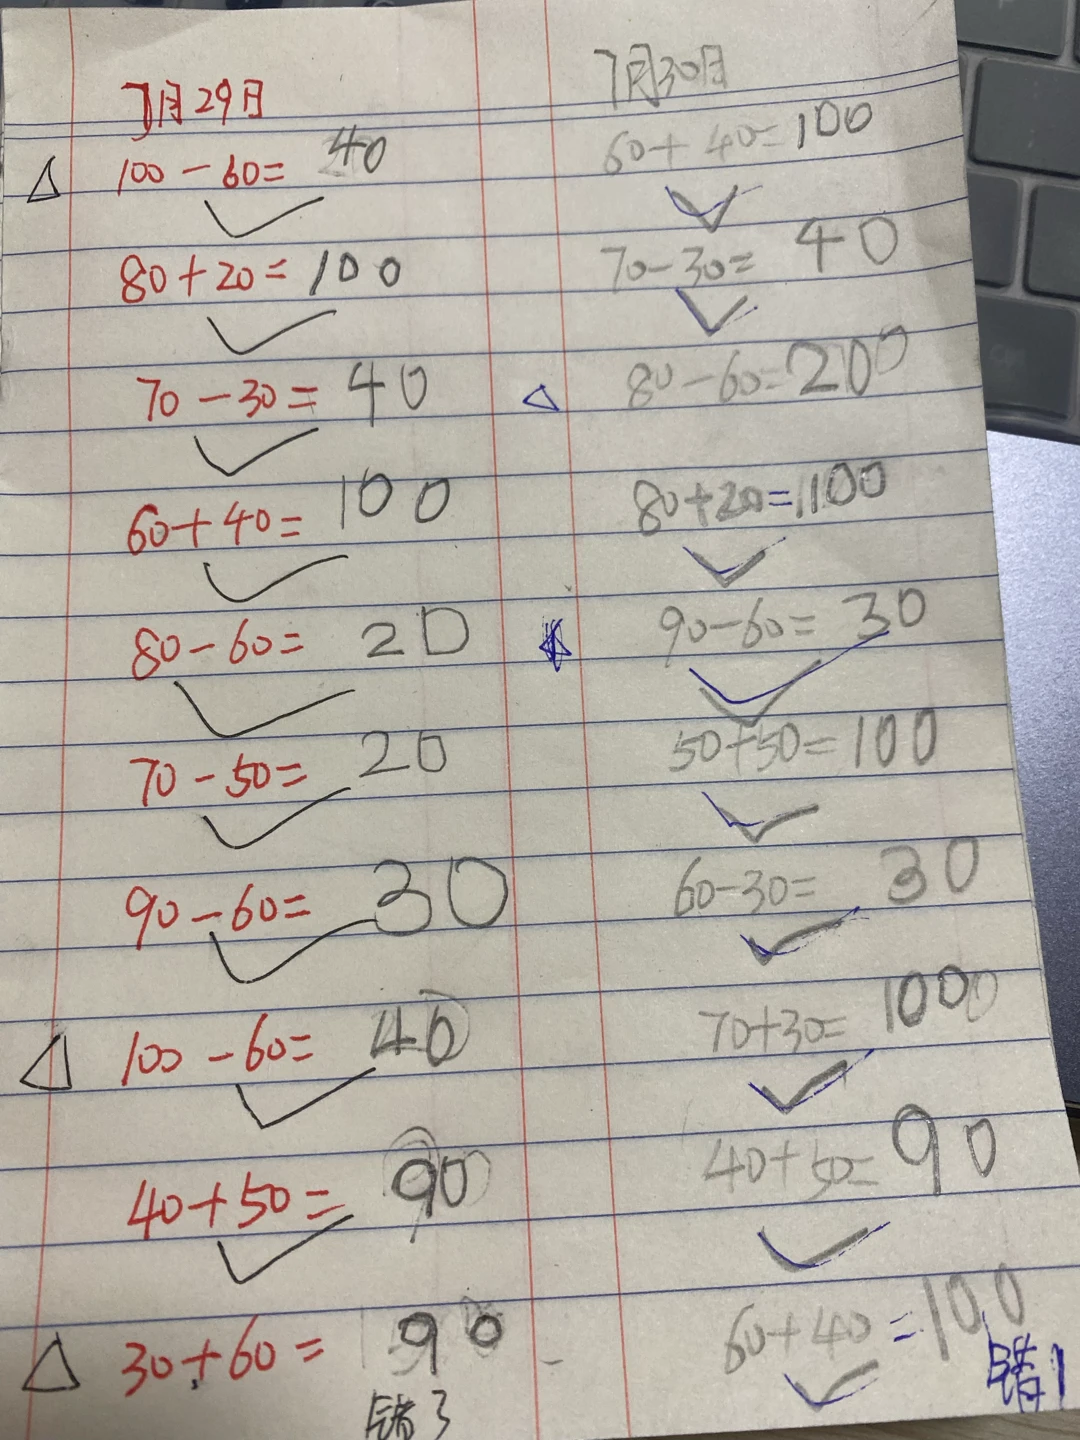 7月29日
100-60=40
80+20=100
70-30=40
60+40=100
80-60=20
70-50=20
90-60=30
100-60=40
40+50=90
30+60=90
错3
7月30日
60+40=100
70-30=40
80-60=200
80+20=100
90-60=30
50+50=100
60-30=30
70+30=100
40+50=90
60+40=100
错1